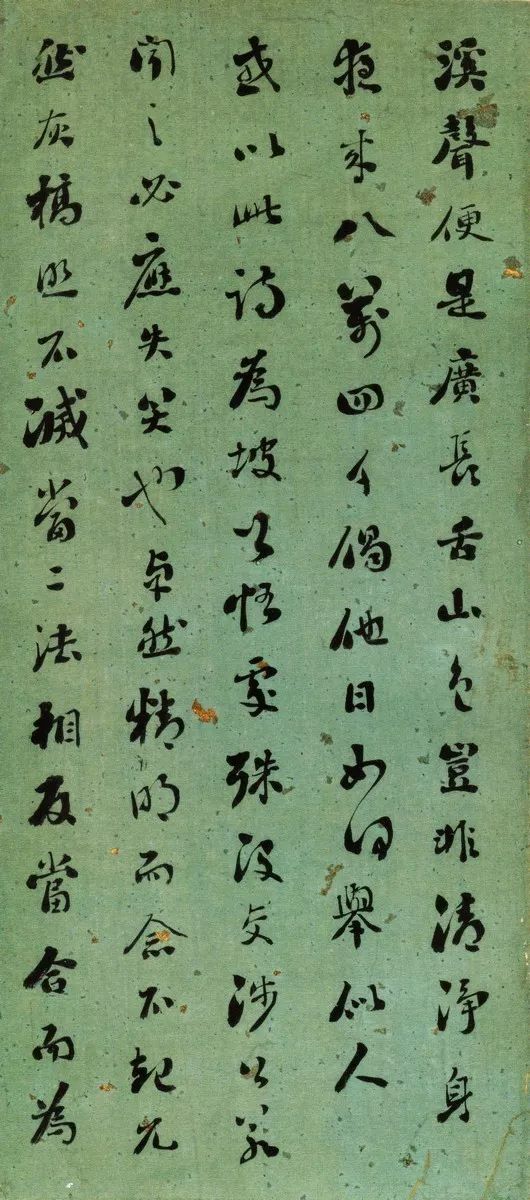 溪聲便是廣長舌山色豈非清淨身
夜來八萬四千偈他日如何舉似人
或以此詩為坡公悟處殊没交涉公若
聞之必應失笑也卓然精明而念不起兀
然灰槁照不滅當二法相反當合而為